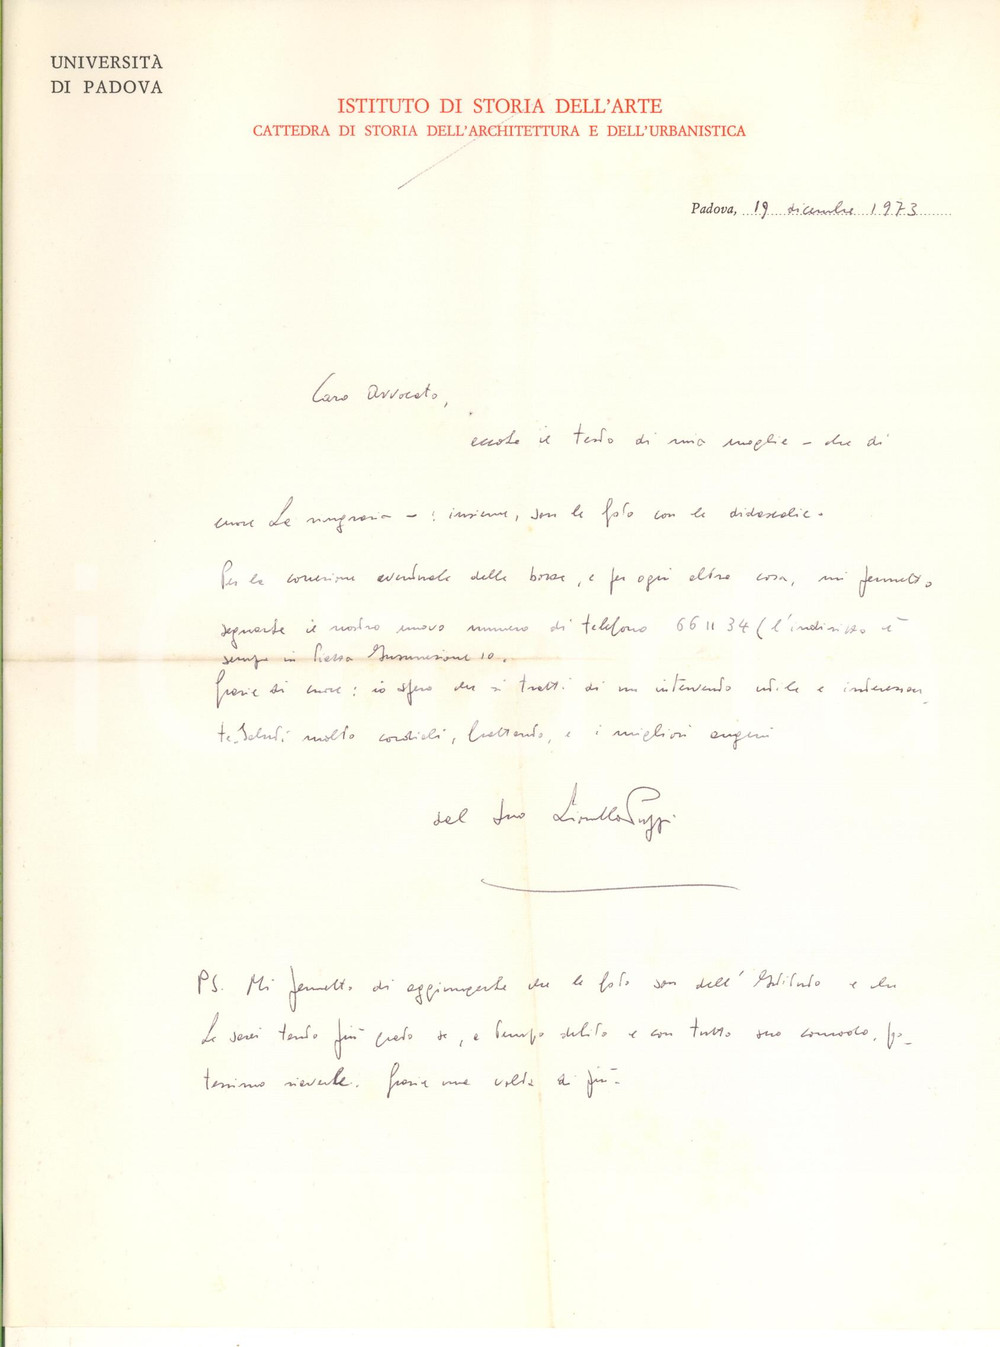 UNIVERSITÀ
DI PADOVA
ISTITUTO DI STORIA DELL'ARTE
CATTEDRA DI STORIA DELL'ARCHITETTURA E DELL'URBANISTICA
Padova, 19 dicembre 1973
Caro Avvocato,
eccole il testo di mia moglie – che di
cuore La ringrazia – : insieme, son le foto con le didascalie.
Per la correzione eventuale delle bozze, e per ogni altra cosa, mi permetto
segnarle il nostro nuovo numero di telefono 661134 (l'indirizzo è
sempre in Piazza Insurrezione 10.
Grazie di cuore: io spero che si tratti di un intervento utile e interessan
te. Saluti molto cordiali, frattanto, e i migliori auguri
dal Suo Lionello Puppi
PS. Mi permetto di aggiungerle che le foto son dell'Istituto e che
Le sarei tanto più grato se, a tempo debito e con tutto suo comodo, po-
tessimo riaverle. Grazie una volta di più.